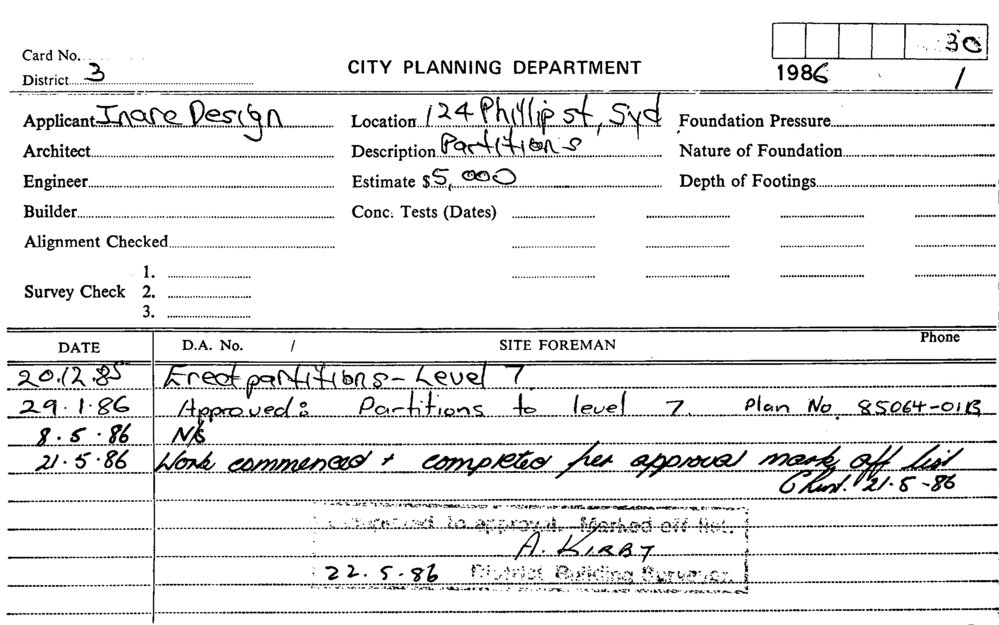 30
Card No.
District 3
CITY PLANNING DEPARTMENT
1986 / 1
Applicant Inare Design
Location 124 Phillip st, Syd
Foundation Pressure
Architect
Description Partitions
Nature of Foundation
Engineer
Estimate $ 5,000
Depth of Footings
Builder
Conc. Tests (Dates)
Alignment Checked
1.
Survey Check 2.
3.
DATE D.A. No. / SITE FOREMAN Phone
20.12.85 Erect partitions - Level 7
29.1.86 Approved: Partitions to level 7. Plan No 85064-01B
8.5.86 N/S
21.5.86 Work commenced + completed per approval mark off list
21-5-86
to approval. Marked off list.
A. KIRBY
22.5.86 District Building Surveyor.